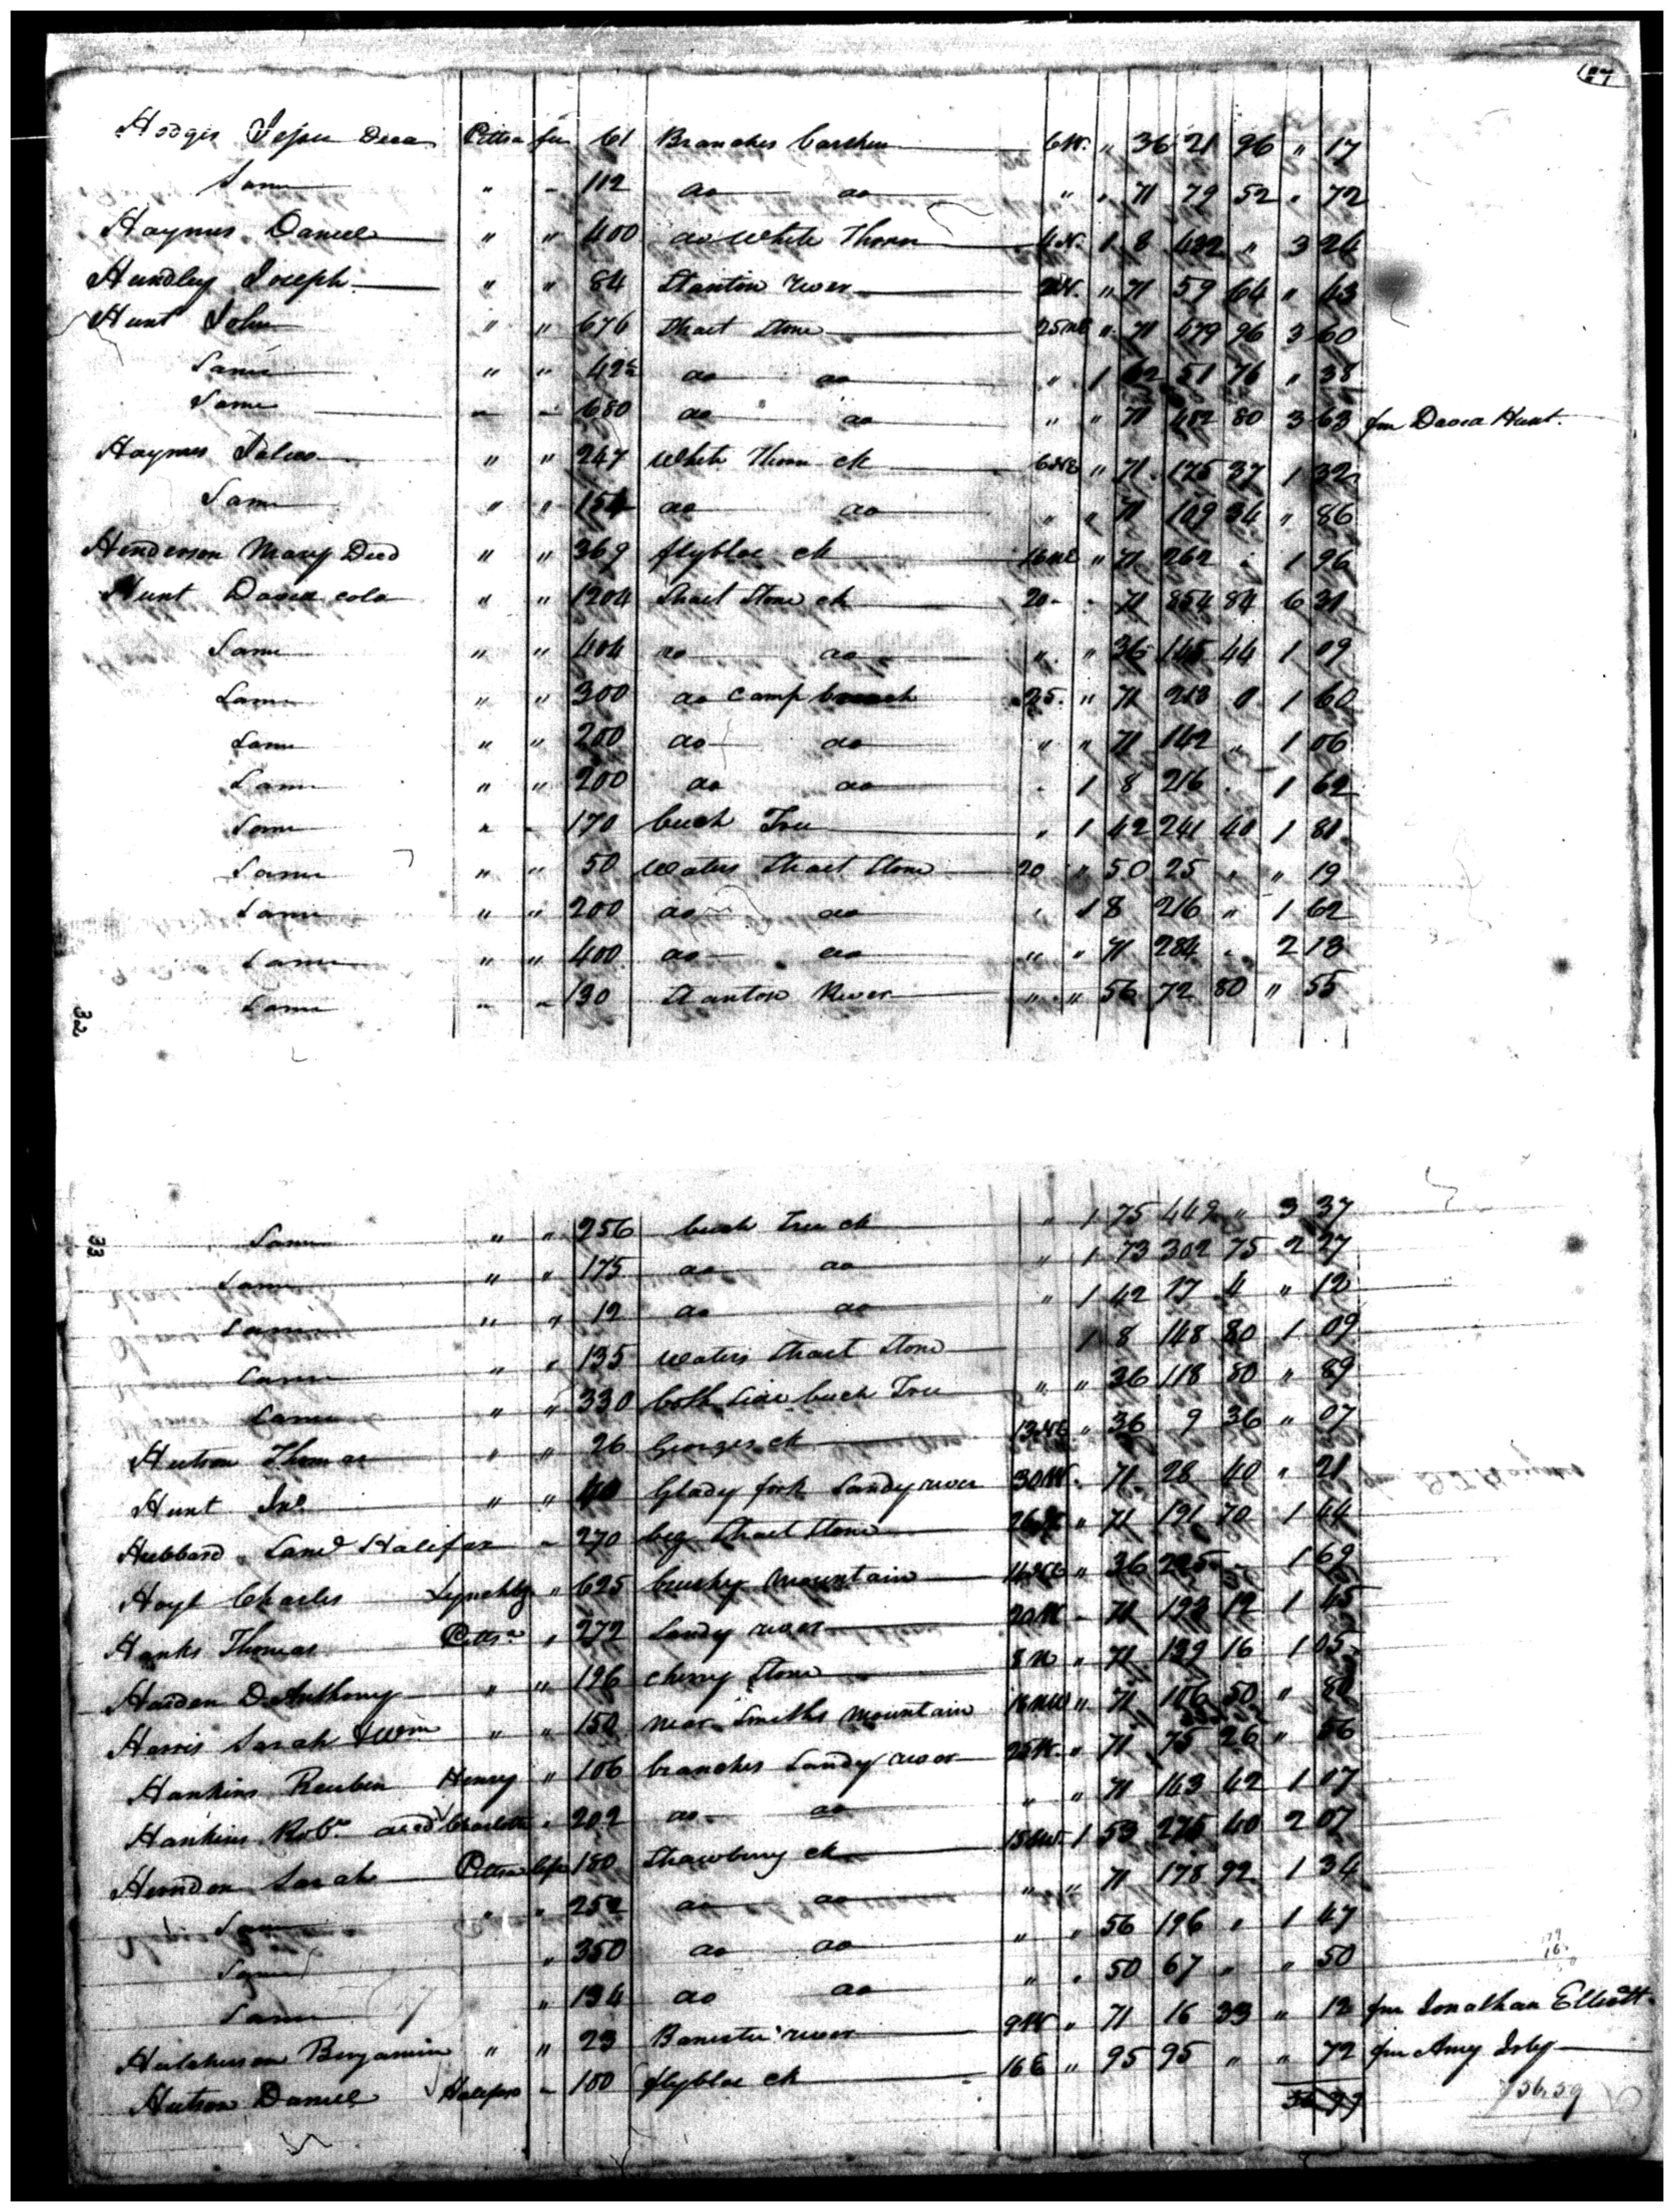 27
Hodges Jesse Decd Pittsa fee 61 Branches 6 W. " 36 21 96 " 17
Same " " 112 do do " " 71 79 52 " 72
Haymes Daniel " " 400 do White Thorn 4 N. 1 8 432 " 3 24
Hundley Joseph " " 84 Stanton river " 71 59 64 " 43
Hunt John " " 676 Strait Stone 25 NE " 71 479 96 3 60
Same " " 42½ do do " 1 51 76 " 38
Same " " 680 do do " " 71 482 80 3 63 fm David Hunt.
Haymes " " 247 White Thorn ck 6 NE " 71 175 37 1 32
Same " " 154 do do " " 71 109 34 " 86
Henderson Mary Decd " " 369 flyblow ck 16 NE " 71 262 " 1 96
Hunt David cold " " 1204 Strait Stone ck 20 " 71 854 84 6 31
Same " " 404 do do " " 36 145 44 1 09
Same " " 300 do camp branch 25. " 71 213 0 1 60
Same " " 200 do do " " 71 142 " 1 06
Same " " 200 do do " 1 8 216 " 1 62
Same " " 170 beech Tree " 1 42 241 40 1 81
Same " " 50 Waters Strait Stone 20 " 50 25 " " 19
Same " " 200 do do " 1 8 216 " 1 62
Same " " 400 do do " " 71 284 " 2 13
Same " " 130 Stanton River " " 56 72 80 " 55
32
33
Same " " 256 beech Tree ck " 1 75 442 " 3 37
Same " " 175 do do " 1 73 302 75 2 27
Same " " 12 do do " 1 42 17 4 " 12
Same " " 135 waters Strait Stone 1 8 148 80 1 09
Same " " 330 both side beech Tree " " 36 118 80 " 89
Hutson Thomas " " 26 Georges ck 13 NE " 36 9 36 " 07
Hunt Jno " " 40 Glady fork Sandy river 30 W. " 71 28 40 " 21
Hubbard Saml Halifax " 270 big Strait Stone " 71 191 70 1 44
Hoyl Charles Lynchbg " 625 brushy Mountain 14 NE " 36 225 " 1 69
Hanks Thomas Pittsa " 272 Sandy river 20 W " 71 193 12 1 45
Harden D Anthony " " 196 cherry Stone 8 N " 71 139 16 1 05
Harris Sarah & Wm " " 150 near Smiths Mountain 16 NW " 71 106 50 " 80
Hankins Reuben Henry " 106 branches Sandy river 25 W. " 71 75 26 " 56
Hankins Robt decd Charlotte " 202 do do " " 71 143 42 1 07
Herndon Sarah Pittsa life 180 Strawberry ck 15 NW 1 53 275 40 2 07
Same " " 252 do do " " 71 178 92 1 34
Same " 350 do do " " 56 196 " 1 47
Same " 134 do do " " 50 67 " " 50
Hutcherson Benjamin " " 23 Banister river 9 W " 71 16 33 " 12 fm Jonathan Elliott
Hutson Daniel Halifax " 100 flyblow ck 16 E " 95 95 " " 72 fm Amy Irby
$56.59